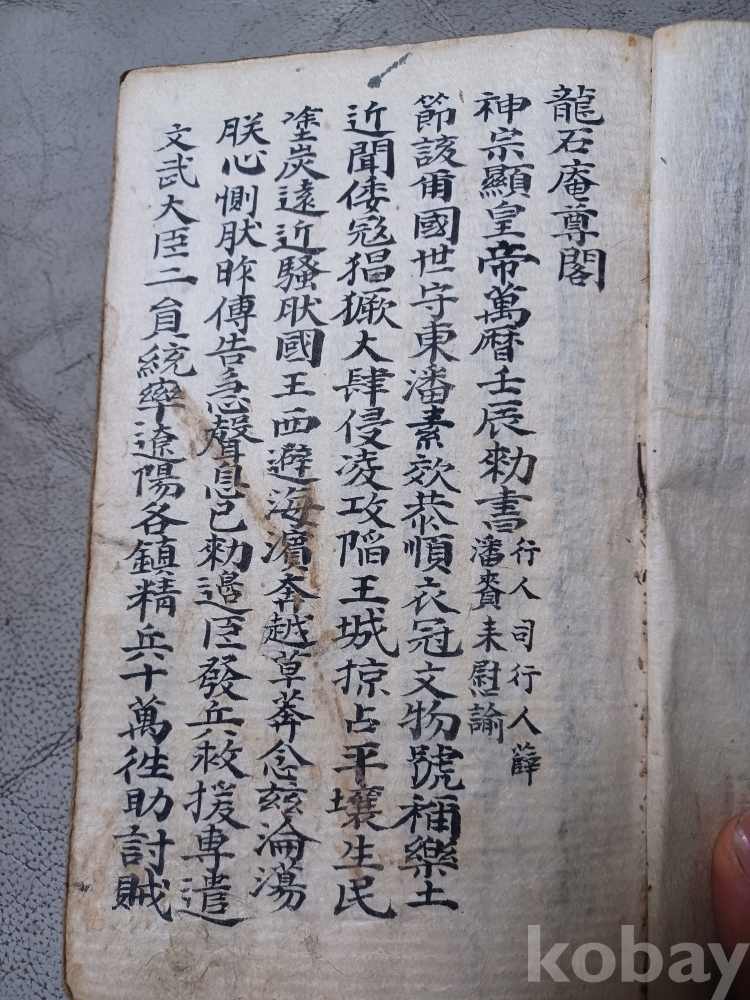 龍石庵尊閣
神宗顯皇帝萬曆壬辰勑書行人司行人薛
潘賚来慰諭
節該甭國世守東潘素效恭順衣冠文物號稱樂土
近聞倭寇猖獗大肆侵凌攻陷王城掠占平壤生民
塗炭遠近騷肰國王西避海濱奔越草莽念玆淪蕩
朕心惻肰昨傳告急聲息已勑邉臣發兵救援專遣
文武大臣二貟統率遼陽各鎮精兵十萬徃助討賊
kobay